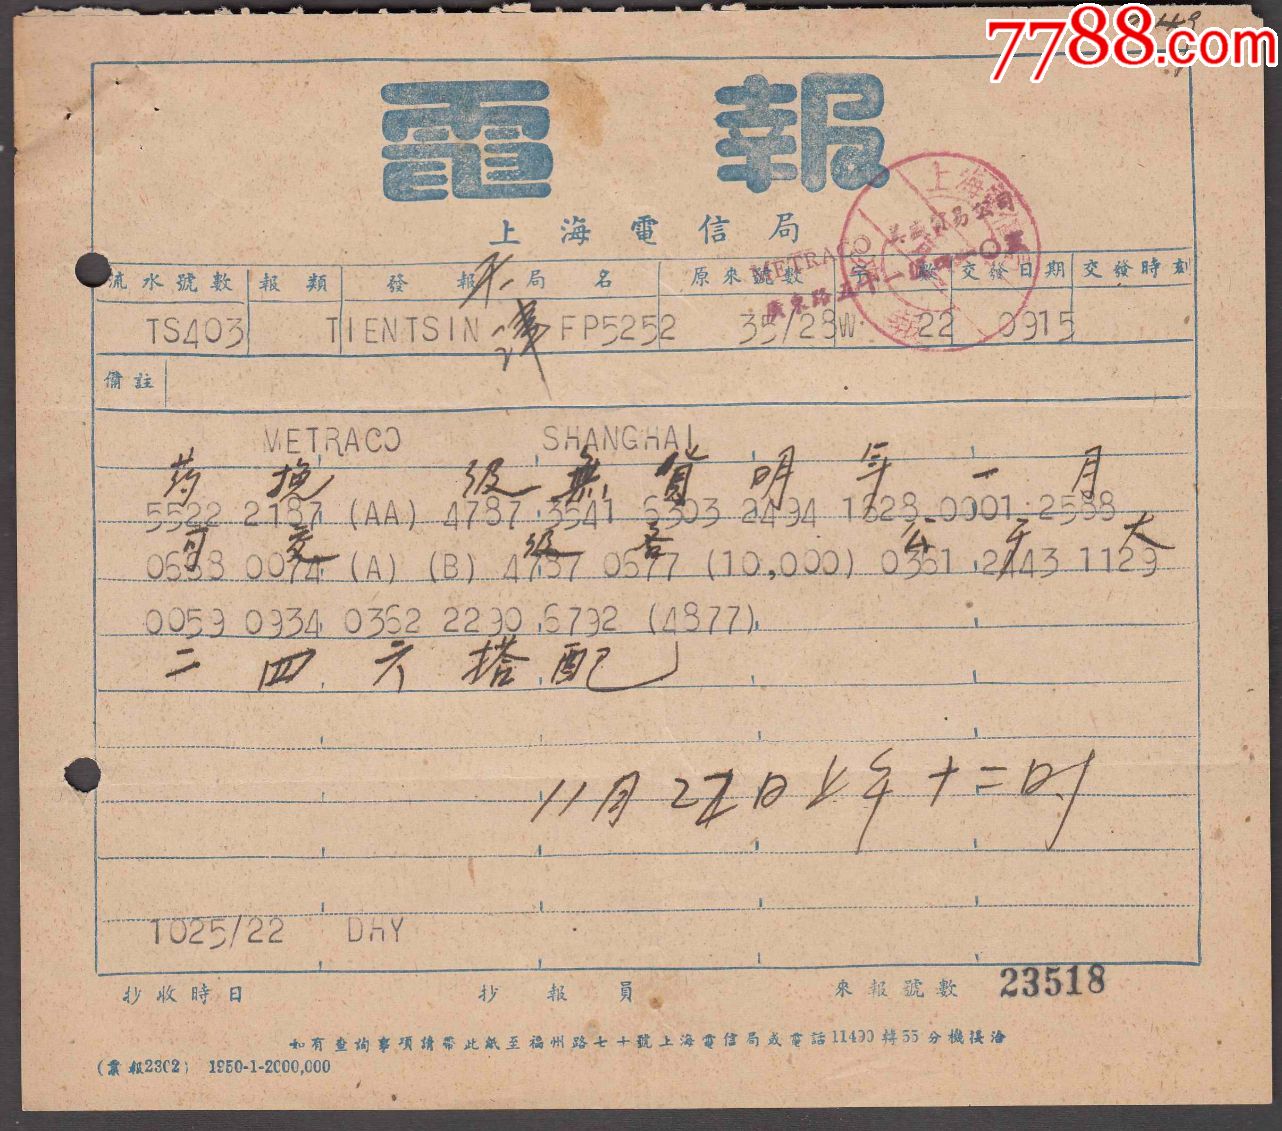 7788.com
電報
上海電信局
METRACO
廣東路五十一號四一〇室
流水號數 報類 發報局名 原來號數 字數 交發日期 交發時刻
天津
TS403 TIENTSIN FP5252 35/28W 22 0915
備註
METRACO SHANGHAI
药挽 级無貨明年一月
5522 2187 (AA) 4787 3541 6303 2494 1628 0001 2588
可交 级各 公斤大
0668 0074 (A) (B) 4787 0677 (10,000) 0361 2443 1129
0059 0934 0362 2290 6792 (4877)
二四六搭配
11月22日上午十二时
1025/22 DHY
抄收時日 抄報員 來報號數 23518
如有查詢事項請帶此紙至福州路七十號上海電信局或電話11490轉55分機接洽
(業報2302) 1950-1-2000,000